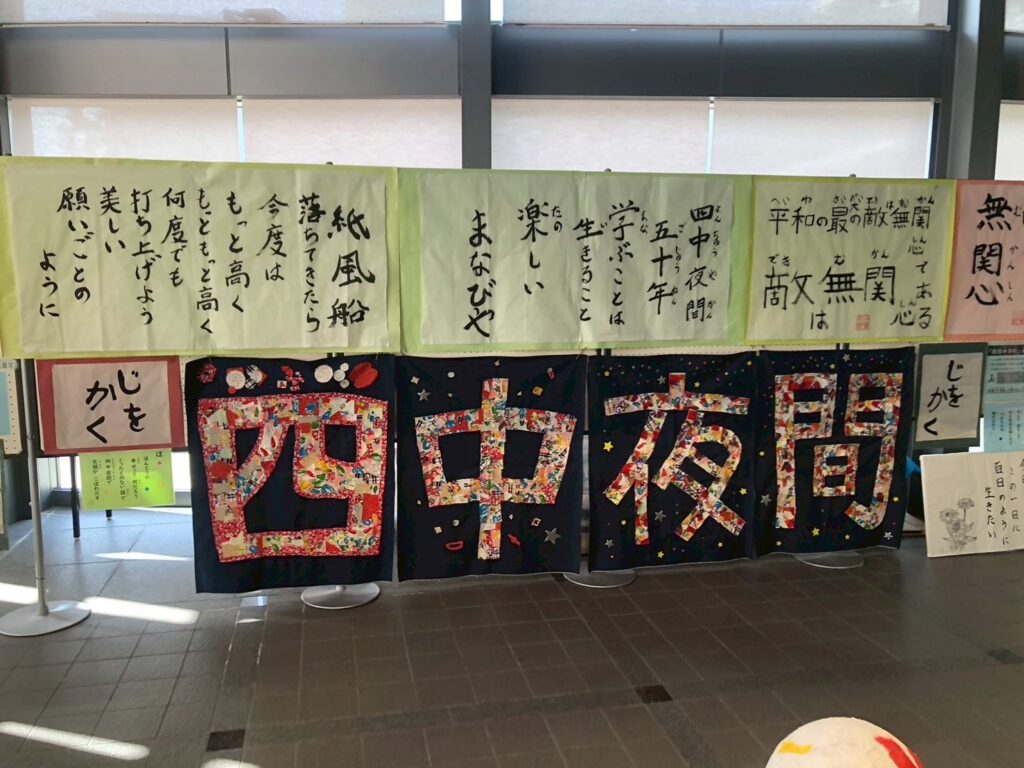 紙風船
落ちてきたら
今度は
もっと高く
もっともっと高く
何度でも
打ち上げよう
美しい
願いごとの
ように
四中夜間
五十年
学ぶことは
生きること
楽しい
まなびや
平和の最の敵は無関
心である
敵は無関心
無関心
じを
かく
四中夜間
じを
かく
ほ
ほんとうの
くったくのない話で
四中夜間で
笑顔が こぼれだす
この一日に
百日のように
生きたい